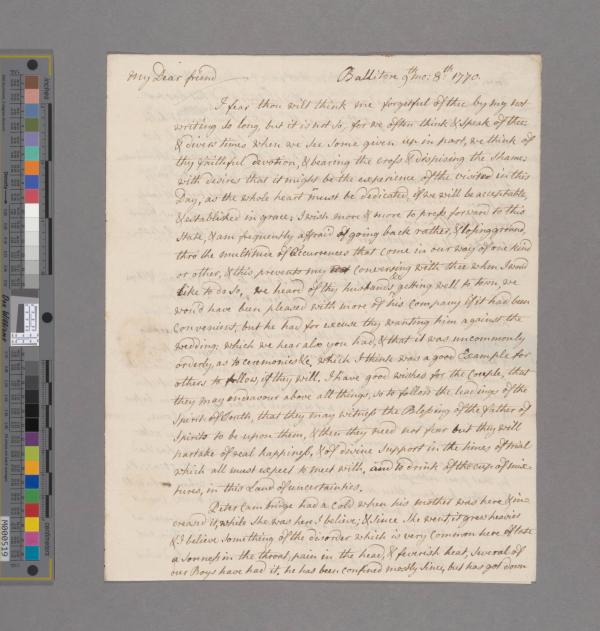 My Dear friend
Ballitore 9th mo: 8th 1770.
I fear thou wilt think me forgetful of thee by my not
writing so long, but it is not so, for we often think & speak of thee
& divers times when we see some given up in part, we think of
thy faithful devotion, & bearing the cross & dispising the shame
with desires that it might be the experience of the visited in this
Day, as the whole heart must be dedicated, if we will be acceptable,
& established in grace; I wish more & more to press forward to this
State, & am frequently affraid of going back rather, & losing ground,
thro the multitude of Occurrences that come in our way of one kind
or other, & this prevents my conversing with thee when I would
like to do so, we heard of thy husbands getting well to town, we
would have been pleased with more of his company if it had been
convenient, but he had for excuse thy wanting him against the
wedding; which we hear also you had, & that it was uncommonly
orderly, as to ceremonies &c, which I think was a good Example for
others to follow, if they will. I have good wishes for the Couple, that
they may endeavour above all things, so to follow the leadings of the
Spirit of Truth, that they may witness the Blessing of the father of
Spirits to be upon them, & then they need not fear but they will
partake of real happiness, & of divine Support in the times of trial
which all must expect to meet with, and to drink of the cup of mix-
tures, in this Land of uncertainties.
Peter Cambridge had a cold when his mother was here & in-
creas'd it, while She was here I believe; & Since She went, it grew heavier
& I believe something of the disorder which is very common here of late
a Soreness in the throat, pain in the head, & feverish heat, Several of
our Boys have had it, he has been confined mostly Since, but has got down
M000519